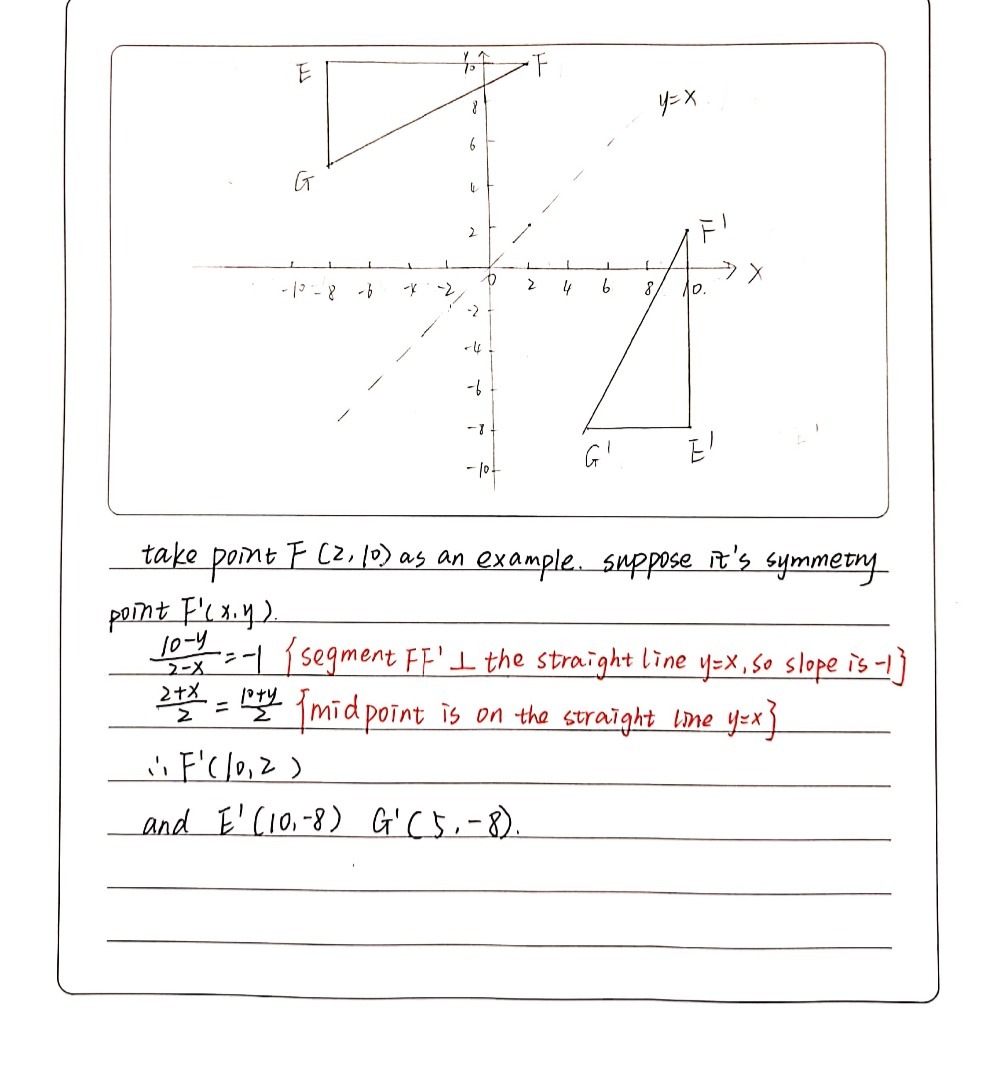 E
y
10
F
8
y=x
6
G
4
2
F'
-10 -8 -6 -4 -2 0 2 4 6 8 10.
x
-2
-4
-6
-8
-10
G'
E'
take point F (2,10) as an example. suppose it's symmetry
point F'(x,y).
10-y/2-x = -1 {segment FF' ⊥ the straight line y=x, so slope is -1}
2+x/2 = 10+y/2 {midpoint is on the straight line y=x}
∴ F'(10,2)
and E'(10,-8) G'(5,-8).